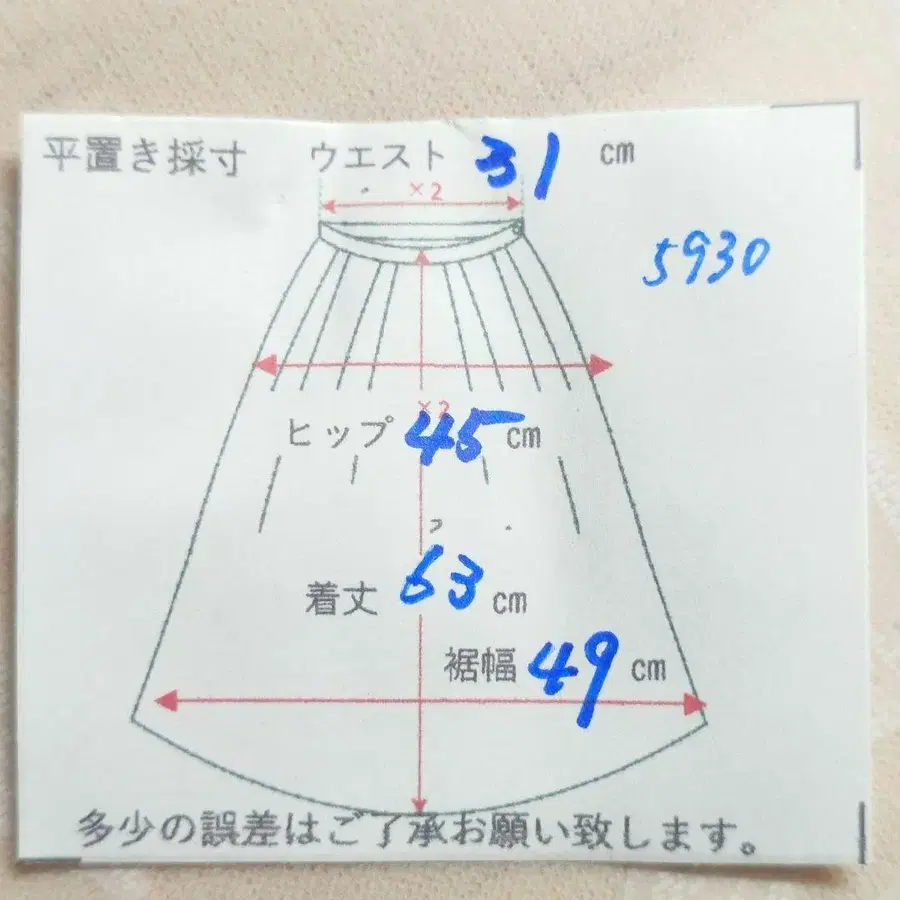 平置き採寸 ウエスト 31 cm
×2
5930
×2
ヒップ 45 cm
着丈 63 cm
裾幅 49 cm
多少の誤差はご了承お願い致します。